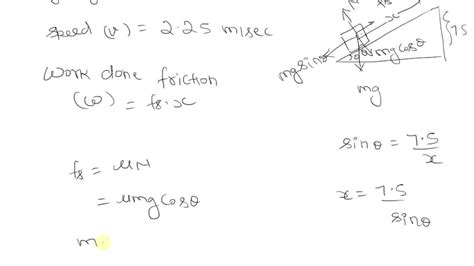 speed (v) = 2.25 m/sec
Work done friction
(ω) = fs.x
fs = μN
= μmg cosθ
m.
N
fs
x
7.5
mg sinθ
mg cosθ
mg
sinθ = 7.5/x
x = 7.5/sinθ